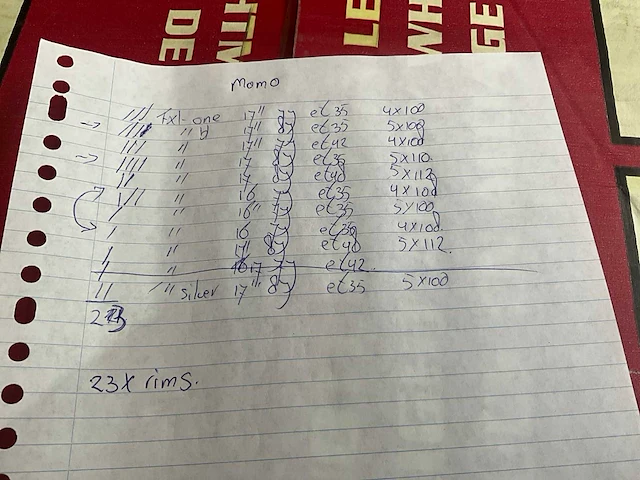 HTW
DE
LE
WH
GE
Momo
/// Fxl-one 17" 7J et35 4x100
→ //// " 17" 8J et35 5x100
/// " 17" 7J et42 4x100
→ //// " 17 8J et35 5x110
" 17 8J et40 5x112
/// " 16 7J et35 4x100
/ " 16" 7J et35 5x100
/ " 16 7J 4x100
/ " 17" 8J et40 5x112.
/ " 17 7J et42.
// /" silver 17" 8J et35 5x100
23
23x rims.